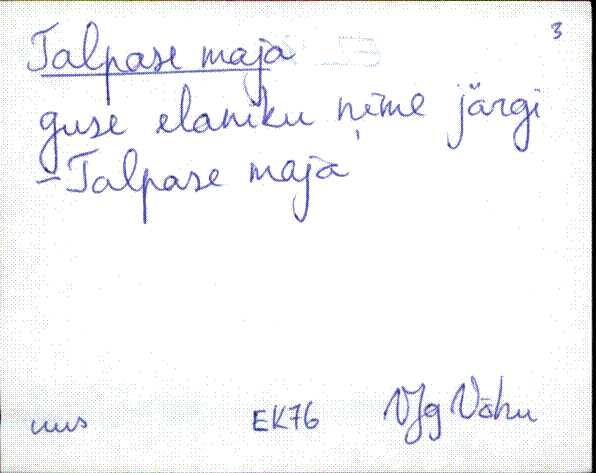 3
Talpase maja
guse elaniku nime järgi
- Talpase maja
uus EK76 VJg Võhu